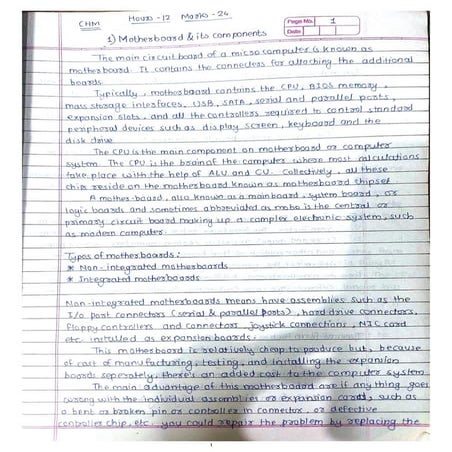 CHM
Hours - 12 Marks - 24
Page No. 1
Date
1) Motherboard & its components
The main circuit board of a micro computer is known as
motherboard. It contains the connectors for attaching the additional
boards.
Typically, motherboard contains the CPU, BIOS memory,
mass storage interfaces, USB, SATA, serial and parallel ports,
expansion slots, and all the controllers required to control standard
peripheral devices such as display screen, keyboard and the
disk drive
The CPU is the main component on motherboard or computer
system. The CPU is the brain of the computer where most calculations
take place with the help of ALU and CU. Collectively, all these
chips reside on the motherboard known as motherboard chipset.
A mother-board, also known as a mainboard, system board, or
logic boards and sometimes abbreviated as mobo is the central or
primary circuit board making up a complex electronic system, such
as modern computer.
Types of motherboards:
* Non-integrated motherboards
* Integrated motherboards
Non-integrated motherboards means have assemblies such as the
I/o port connectors (serial & parallel ports), hard drive connectors,
floppy controllers and connectors, joystick connections, NIC card
etc. installed as expansion boards.
This motherboard is relatively cheap to produce but, because
of cost of manufacturing, testing, and installing the expansion
boards seperately, there's an added cost to the computer system
The main advantage of this motherboard are if any thing goes
wrong with the individual assemblies or expansion cards, such as
a bent or broken pin or controller in connector, or defective
controller chip, etc. you could repair the problem by replacing the
1